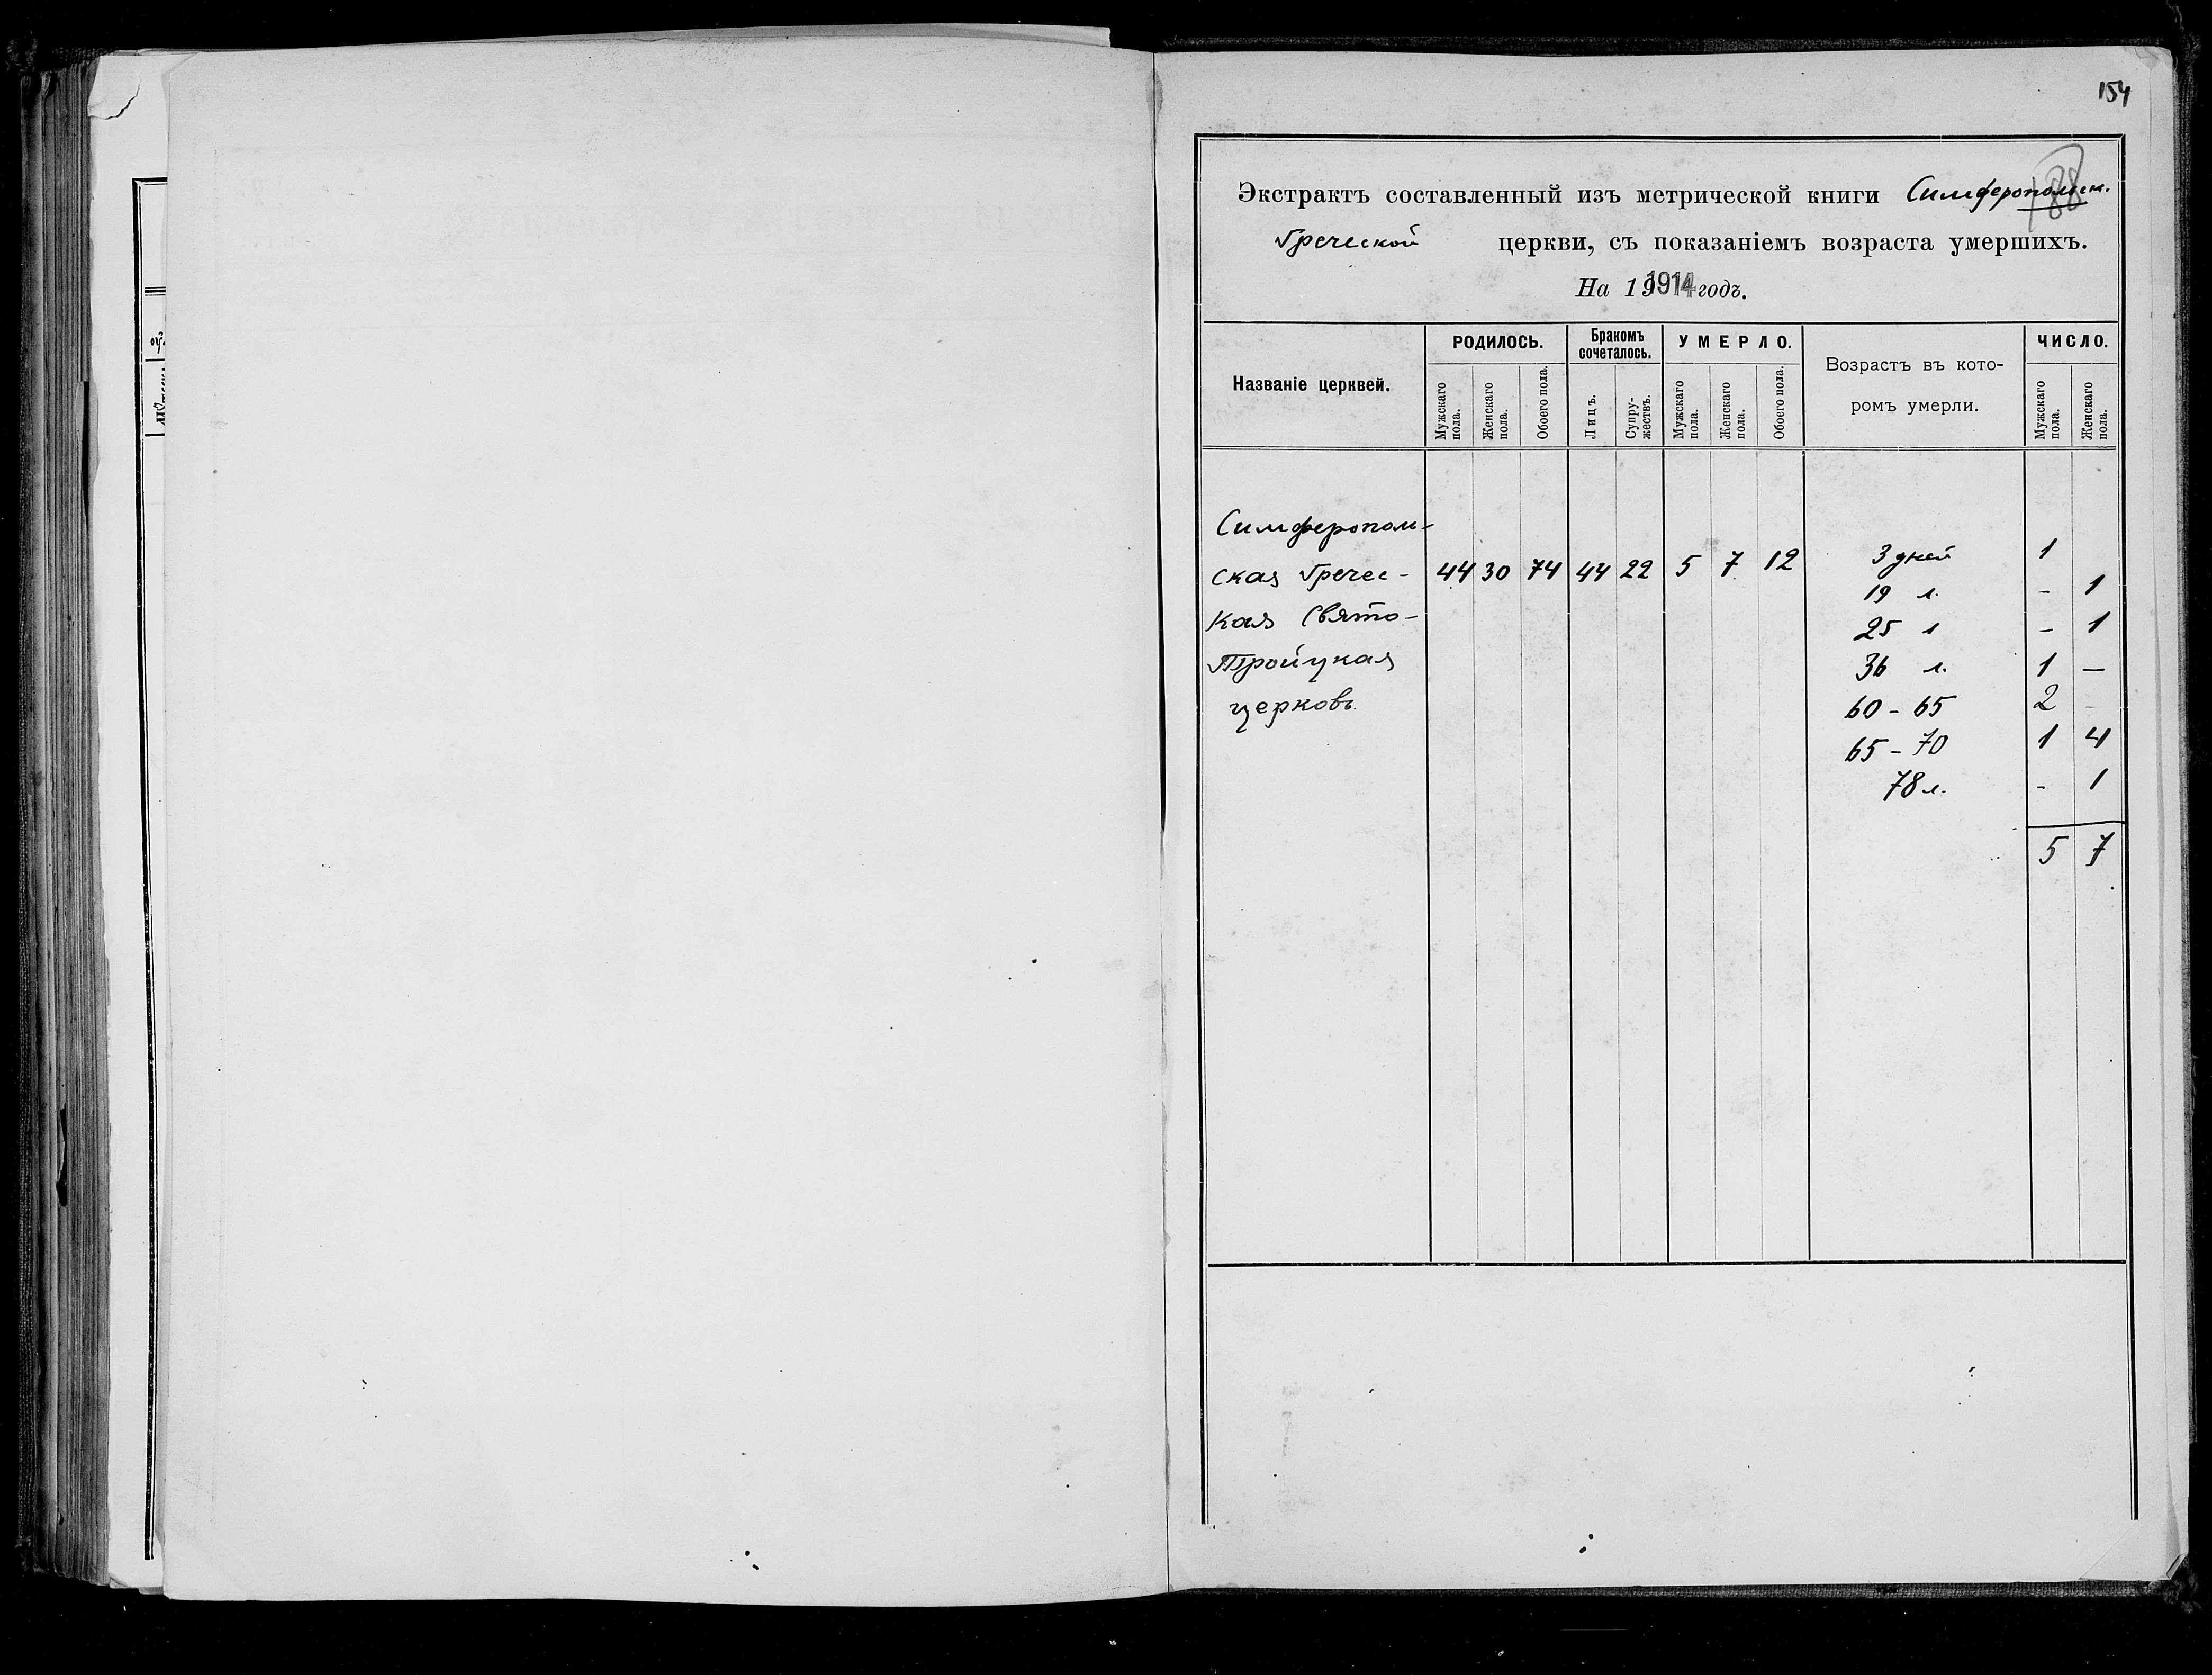 154
188
Экстрактъ составленный изъ метрической книги Симферопольск.
Греческой церкви, съ показаніемъ возраста умершихъ.
На 191914 годъ.
Названіе церквей.
РОДИЛОСЬ.
Бракомъ сочеталось.
УМЕРЛО.
Возрастъ въ кото-
ромъ умерли.
ЧИСЛО.
Мужскаго пола.
Женскаго пола.
Обоего пола.
Лицъ.
Супру-
жествъ.
Мужскаго пола.
Женскаго пола.
Обоего пола.
Мужскаго пола.
Женскаго пола.
Симферополь-
ская Гречес- 44 30 74 44 22 5 7 12 3 дней 1
19 л. - 1
кая Свято- 25 л - 1
Тройцкая 36 л. 1 —
церковь. 60 - 65 2 -
65 - 70 1 4
78 л. - 1
5 7